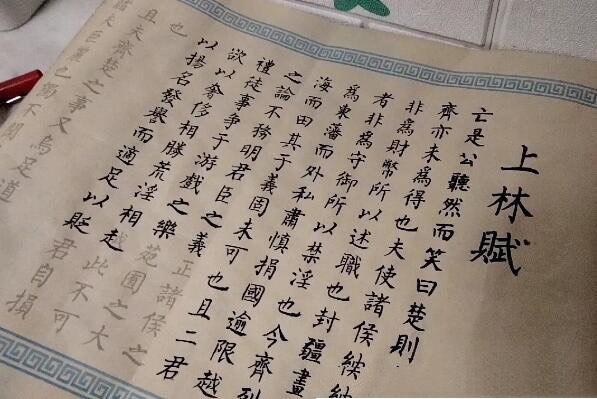 上林賦
亡是公聽然而笑曰楚則
齊亦未爲得也夫使諸侯納
非爲財幣所以述職也封疆畫
者非爲守御所以禁淫也今齊列
爲東藩而外私肅慎捐國逾限越
海而田其于義固未可也且二君
之論不務明君臣之義正諸侯之
禮徒事爭于游戲之樂苑囿之大
欲以奢侈相勝荒淫相越此不可
以揚名發譽而適足以貶君自損
也
且夫齊楚之事又烏足道
夫巨麗也獨不聞